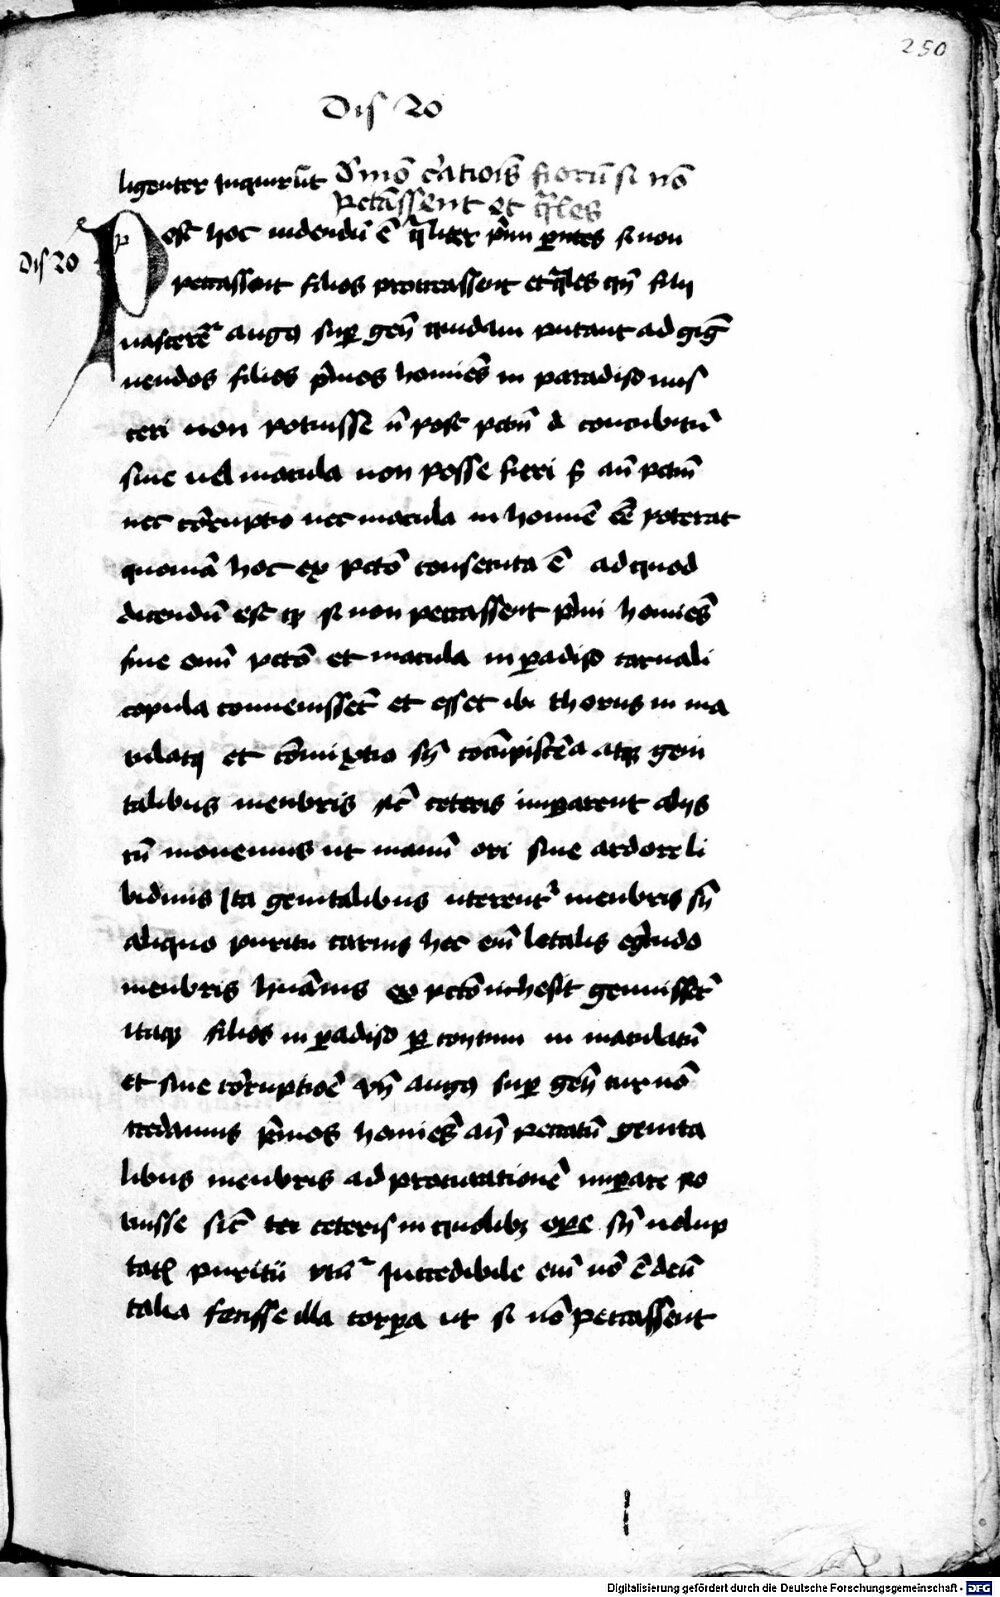 250
Dis 20
ligenter inquirūt D' mō c'atiōis filiorū si nō
pctāssent et q̄les
Dis 20
Post hoc uidendū ē q̄liter p̄mi parētes si non
peccassent filios procreassent et q̄les ip̄i filij
nascerēt᷑ augꝰ sup̱ geñ quidam putant ad gig
nendos filios p̄mos homiēs in paradiso mis
ceri non potuisse n̄ post pctm̄ d concubitū
sine uel macula non posse fieri s̄ an̄ pctm̄
nec cōrruptio nec macula in homīe eē poterat
quoniā hoc ex pctō consecuta ē ad quod
dicendū est ꝙ si non peccassent p̄mi homiēs
sine om̄i pctō et macula in ꝑadiso carnali
copula conuenissēt et esset ibi thorus in ma
culatꝰ et cōmixtio sn̄ cōcupiscēa atqꝫ geni
talibus menbris sic̄ ceteris imꝑarent alijs
cū mouemus ut manū ori sine ardore li
bidinis Ita genitalibus uterent᷑ menbris sn̄
aliquo puritu carnis hec em̄ letalis eg̓tudo
menbris hūanis ex pctō inhesit genuissēt
itaqꝫ filios in ꝑadiso ꝑ coytum in maculatū
et sine cōrruptiōe vn̄ augꝰ sup̱ geñ cur nō
credamus p̄mos homiēs an̄ peccatū genita
libus menbris ad procreationē imꝑare po
tuisse sic̄ ceteris in quolibꝫ oꝑe sn̄ uolup
tatꝭ puritu vtūt᷑ Incredibile em̄ nō ē deū
talia fecisse illa corꝑa ut si nō peccassent
Digitalisierung gefördert durch die Deutsche Forschungsgemeinschaft - DFG